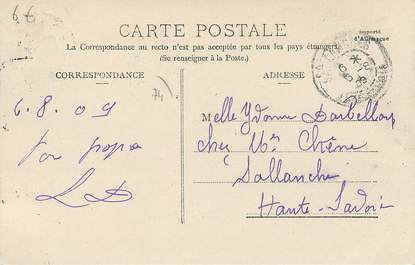 6 6
CARTE POSTALE
importé
d'Allemagne
La Correspondance au recto n'est pas acceptée par tous les pays étrangers
(Se renseigner à la Poste.)
CORRESPONDANCE
ADRESSE
74
6.8.09
ton papa
LD
Melle Ydonne Barbellon
chez Mr Chêne
Sallanche
Haute-Savoie